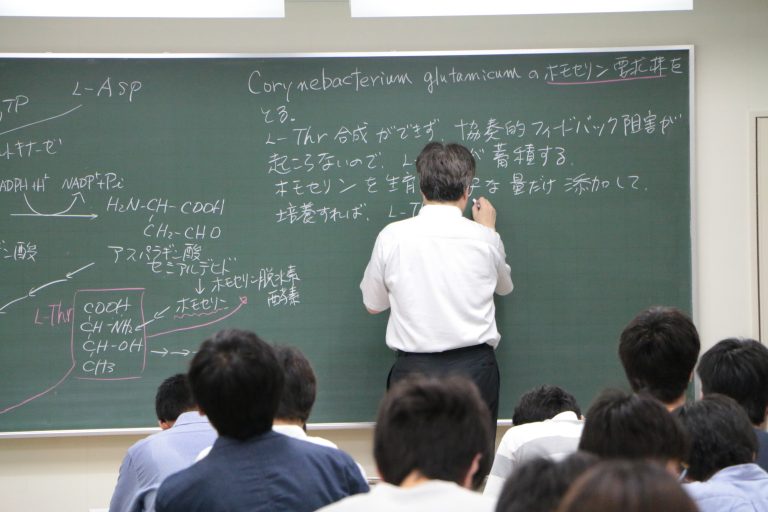 L-Asp
TP
トキナーゼ
ADPH+H⁺ NADP⁺+Pi
H₂N-CH-COOH
CH₂-CHO
アスパラギン酸
セミアルデヒド
ホモセリン脱水素
酵素
ホモセリン
ン酸
L-Thr
COOH
CH-NH₂
CH-OH
CH₃
Corynebacterium glutamicum の ホモセリン要求株を
とる。
L-Thr 合成ができず、協奏的フィードバック阻害が
起こらないので、L- が蓄積する.
ホモセリンを生育 な量だけ添加して、
培養すれば、L-